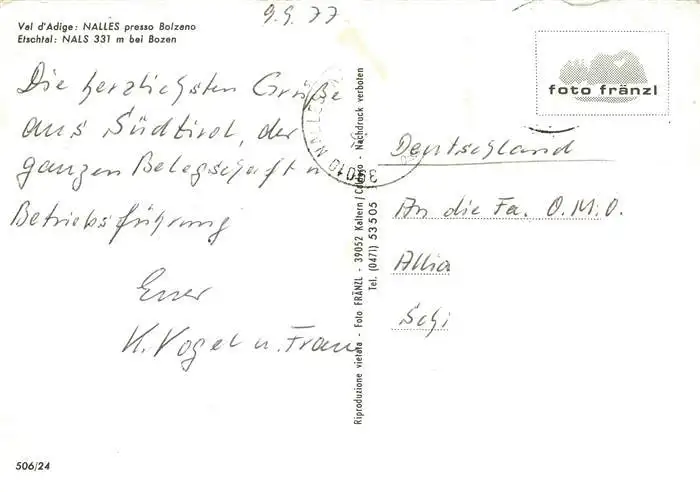 Val d'Adige: NALLES presso Bolzano
Etschtal: NALS 331 m bei Bozen
9.9.77
Die herzlichsten Grüße
aus Südtirol, der
ganzen Belegschaft u
Betriebsführung
Euer
K. Vogel u. Frau
506/24
Riproduzione vietata - Foto FRÄNZL - 39052 Kaltern/Caldaro - Nachdruck verboten
Tel. (0471) 53505
foto fränzl
39010 NALLES
Deutschland
An die Fa. O.M.O.